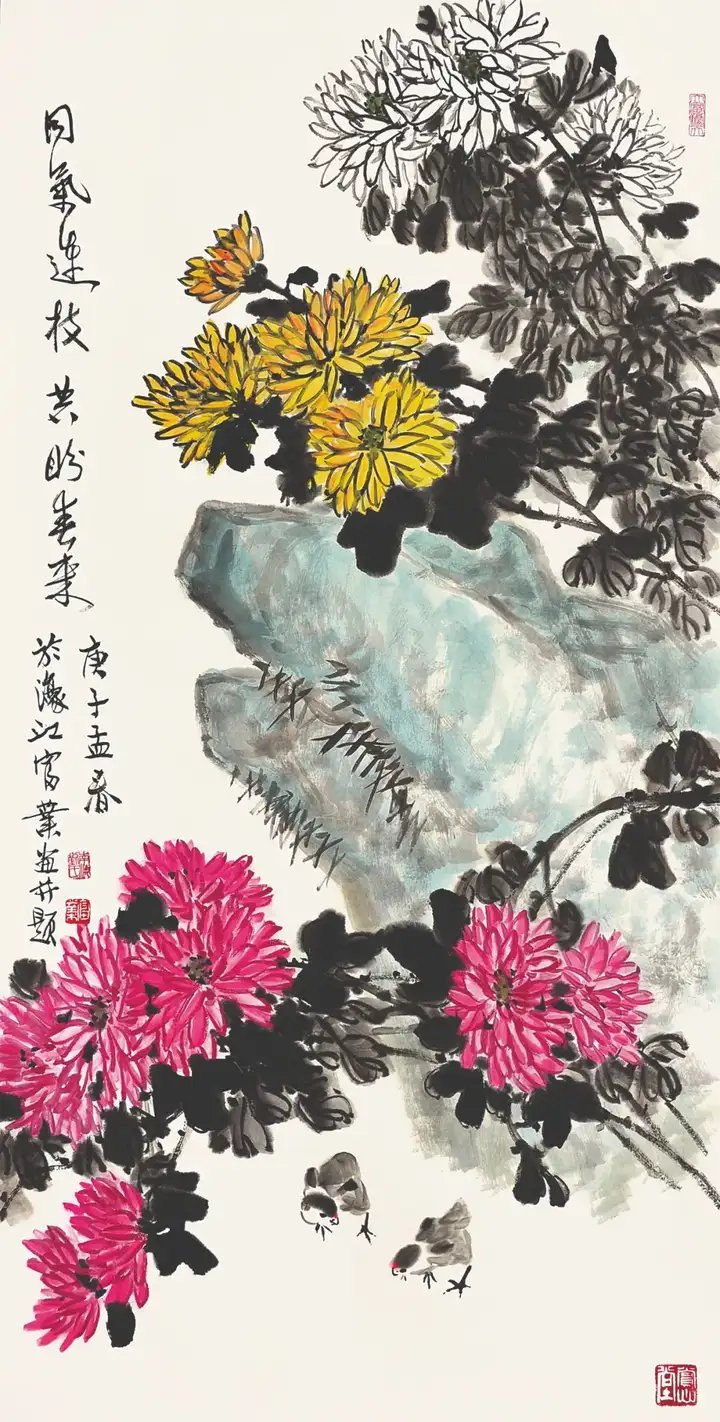 同氣連枝 共盼春來
庚子孟春
於濠江富業畫并題